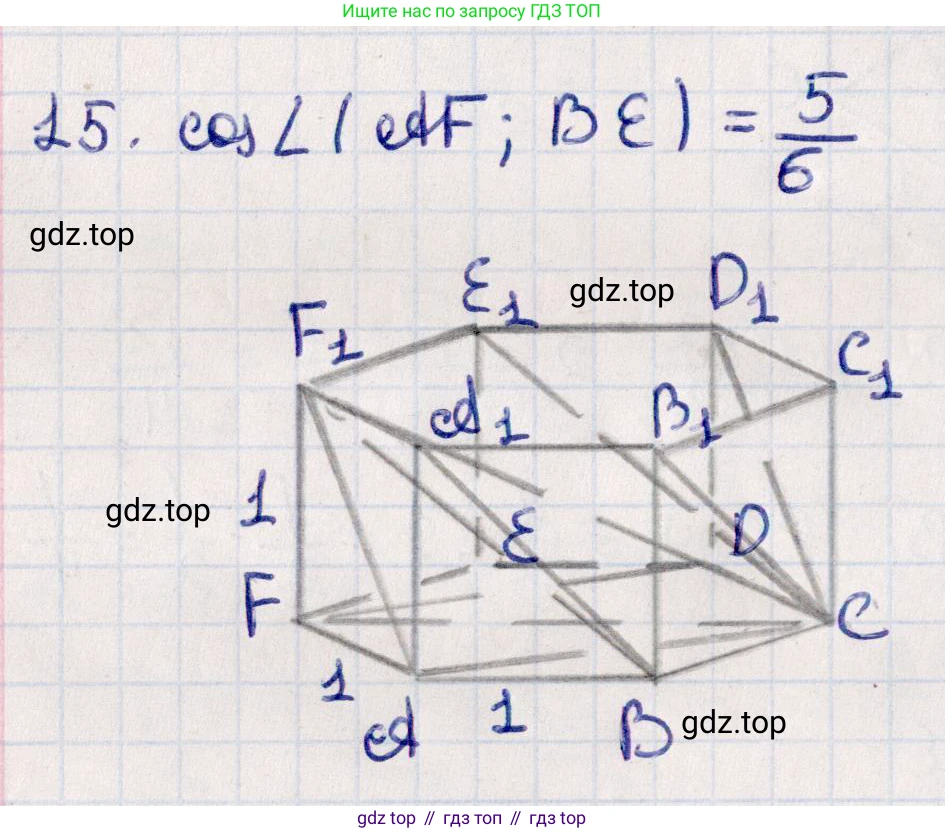 Ищите нас по запросу ГДЗ ТОП
15. cos∠(AF; BE) = 5/6
gdz.top
gdz.top
E₁
D₁
F₁
C₁
A₁
B₁
1
gdz.top
E
D
F
C
1
1
A
B
gdz.top
gdz top // гдз топ // gdz top